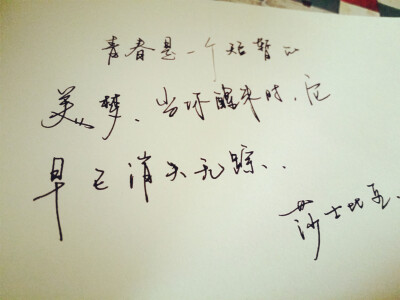 青春是一个短暂的
美梦、当你醒来时,它
早已消失无踪、、
莎士比亚、